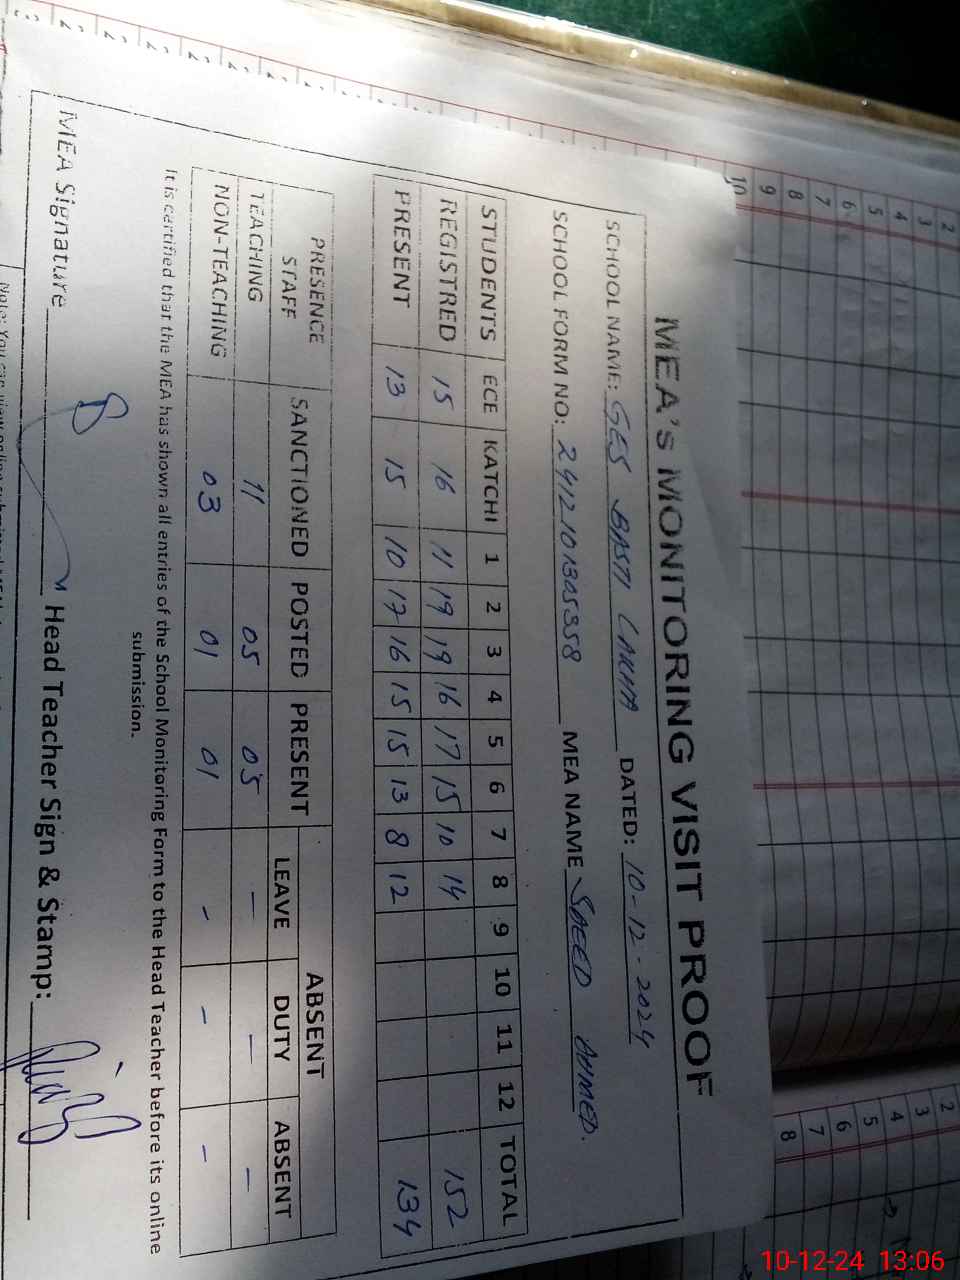 MEA's MONITORING VISIT PROOF
SCHOOL NAME: GES BASTI LAKHA DATED: 10-12-2024
SCHOOL FORM NO: 2412101305358 MEA NAME SAEED AHMED.
STUDENTS ECE KATCHI 1 2 3 4 5 6 7 8 9 10 11 12 TOTAL
REGISTRED 15 16 11 19 19 16 17 15 10 14 152
PRESENT 13 15 10 17 16 15 15 13 8 12 134
PRESENCE STAFF SANCTIONED POSTED PRESENT ABSENT
LEAVE DUTY ABSENT
TEACHING 11 05 05 – – –
NON-TEACHING 03 01 01 - - -
It is certified that the MEA has shown all entries of the School Monitoring Form to the Head Teacher before its online
submission.
MEA Signature Head Teacher Sign & Stamp:
Note: You can view online submitted
2 3 4 5 6 7 8 9 10
2 3 4 5 6 7 8
10-12-24 13:06